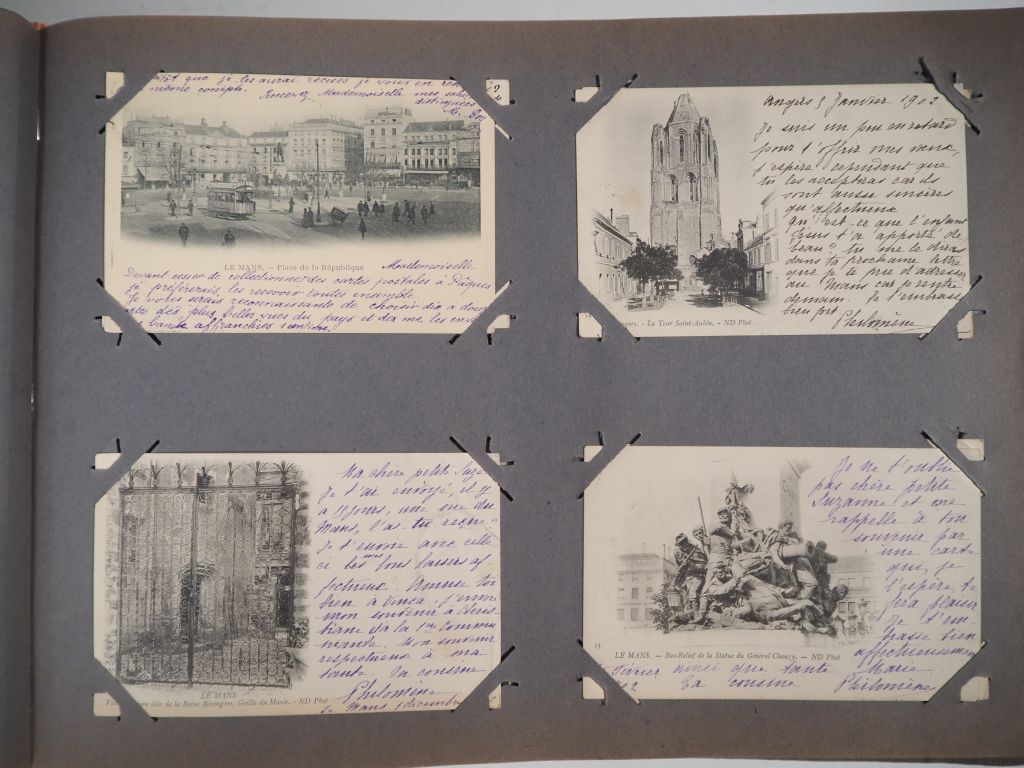 que je les aurai reçues je vous en
même compte. Recevez, Mademoiselle mes
distinguées
LE MANS. — Place de la République
Mademoiselle
Devant cesser de collectionner des cartes postales à Pâques
je préfèrerais les recevoir toutes ensemble.
Je vous serais reconnaissante de choisir dix à douze
des plus belles vues du pays et de me les
affranchies 1 centime.
Angers 5 Janvier 1902
Je suis un peu en retard
pour t'offrir mes vœux,
j'espère cependant que
tu les accepteras car ils
sont aussi sincères
qu'affectueux
Qu'est-ce que l'enfant
Jésus t'a apporté de
beau? tu me le diras
dans ta prochaine lettre
que je te prie d'adresser
au Mans car je rentre
demain. Je t'embrasse
bien fort
Philomène
La Tour Saint-Aubin. - ND Phot
Ma chère petite Suze
Je t'ai envoyé, il y
a 10 jours, une vue du
Mans, l'as tu reçue?
Je t'envoie avec celle
ci mes bons baisers af-
fectueux. Amuse toi
bien à Vinça, j'envoie
mon souvenir à
la 1ère Commu
niante. Mon souvenir
respectueux à ma
tante. Ta cousine
Philomène
Le Mans, décembre
LE MANS
dite de la Reine Bérengère, Grille du Musée. - ND Phot
Je ne t'oublie
pas chère petite
Suzanne et me
rappelle à ton
souvenir par
une carte
qui, je
l'espère, te
fera plaisir
Je t'em-
brasse bien
affectueusement
23
LE MANS. - Bas-Relief de la Statue du Général Chanzy. - ND Phot
ainsi que tante Marie
Ta cousine Philomène